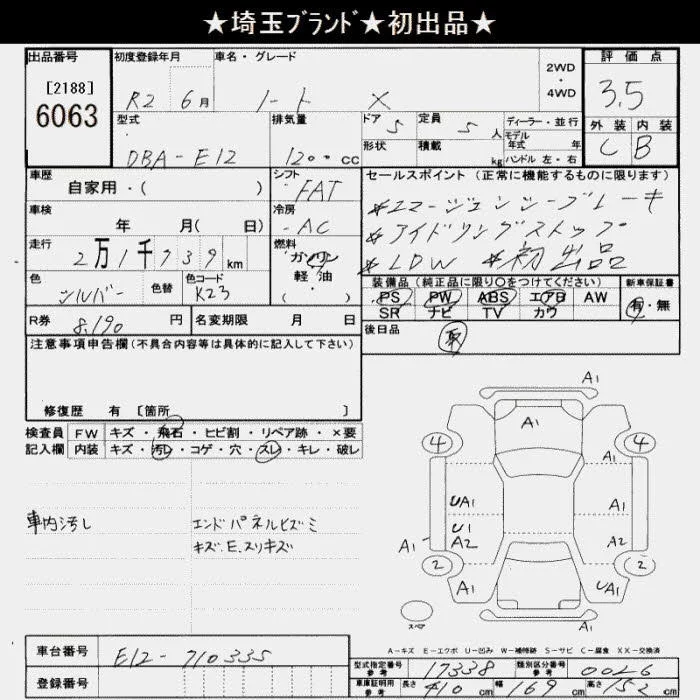 ★埼玉ﾌﾞﾗﾝﾄﾞ★初出品★
出品番号
[2188]
6063
初度登録年月
R2 6月
車名・グレード
ノート X
2WD
・
4WD
評価点
3.5
型式
DBA-E12
排気量
1200 cc
ドア 5
定員 5 人
形状
積載 kg
ディーラー・並行
モデル
年式 年
ハンドル 左・右
外装 内装
C B
車歴
自家用・( )
シフト
FAT
セールスポイント (正常に機能するものに限ります)
#エマージェンシーブレーキ
#アイドリングストップ
#LDW #初出品
車検
年 月( 日)
冷房
AC
走行
2万1千739km
燃料
ガソリン
軽油・
色
シルバー
色替
色コード
K23
装備品 (純正品に限り○をつけてください)
PS PW ABS エアB AW
SR ナビ TV カワ
新車保証書
有・無
R券
8,190 円
名変期限 月 日
後日品
取
注意事項申告欄(不具合内容等は具体的に記入して下さい)
修復歴 有 [箇所 ]
検査員
記入欄
FW キズ・飛石・ヒビ割・リペア跡・×要
内装 キズ・汚レ・コゲ・穴・スレ・キレ・破レ
車内汚し
エンドパネルヒズミ
キズ.E.スリキズ
A1
A1
A1
4
4
UA1
A1
U1
A2
A2
A1
2
2
A1
UA1
A1
スペア
A-キズ E-エクボ U-凹み W-補修跡 S-サビ C-腐食 XX-交換済
車台番号
E12-710335
登録番号
型式指定番号
参考
17338
類別区分番号
参考
0026
車庫証明用
参考
長さ 410 cm
幅 169 cm
高さ 152 cm